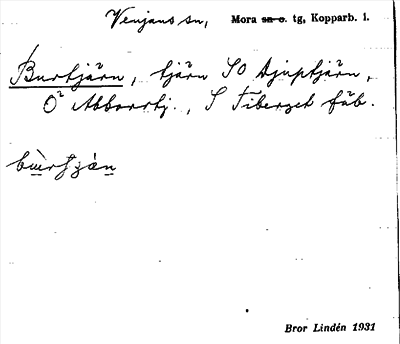 Venjans sn, Mora sa o. tg, Kopparb. l.
Burtjärn, tjärn SO Djuptjärn,
O² Abborrtj., S Fiberget fäb.
bùrtjän
Bror Lindén 1931